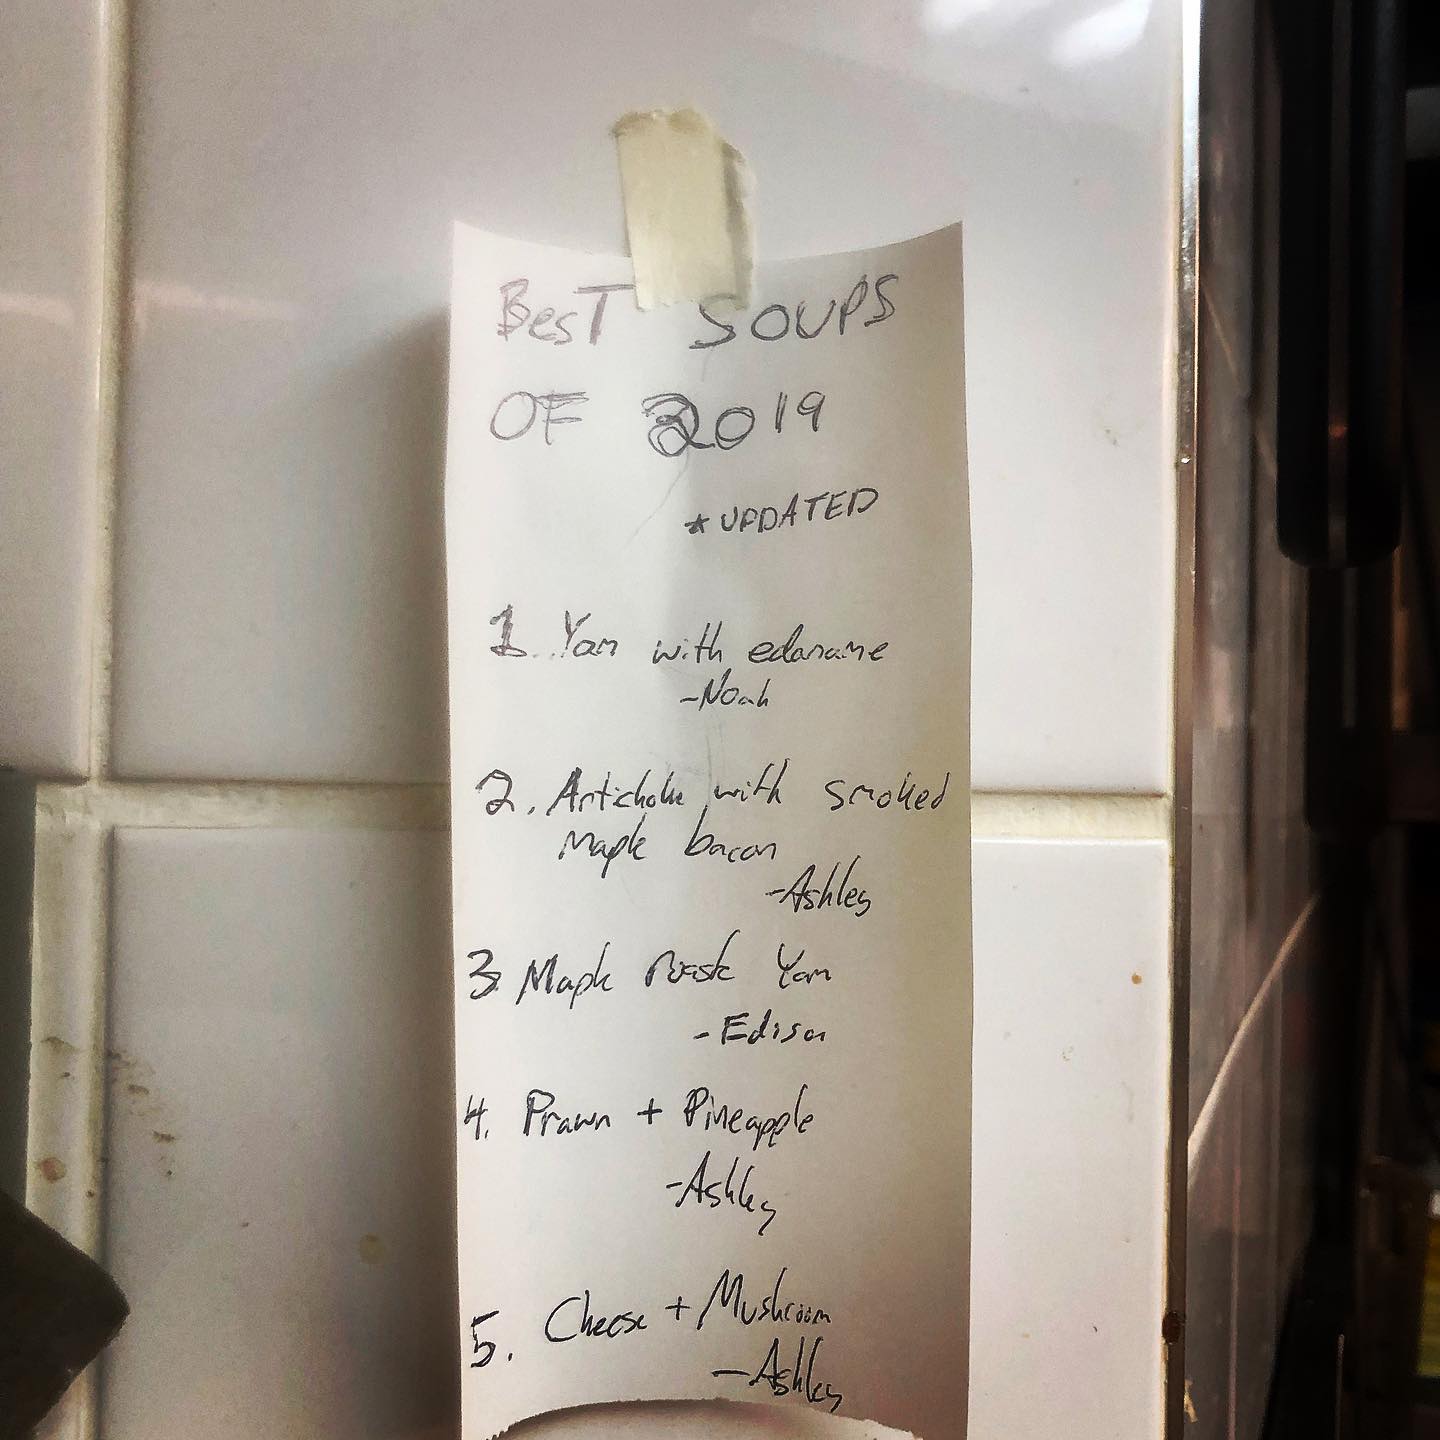 BesT SOUPS
OF 2019
*UPDATED
1. Yam with edaname
-Noah
2. Artichoke with smoked
maple bacon
-Ashley
3. Maple roast Yam
-Edison
4. Prawn + Pineapple
-Ashley
5. Cheese + Mushroom
-Ashley